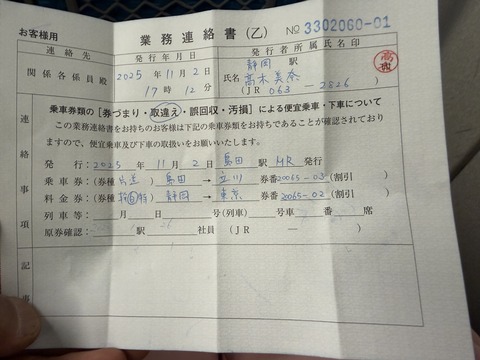 お客様用
業務連絡書(乙) № 3302060-01
連絡先 発行年月日 発行者所属氏名印
関係各係員殿 2025年11月2日 17時12分
静岡駅
氏名 高木美奈
(JR 063 - 2826)
連絡事項
乗車券類の[券づまり・取違え・誤回収・汚損]による便宜乗車・下車について
この業務連絡書をお持ちのお客様は下記の乗車券類をお持ちであることが確認されており
ますので、便宜乗車及び下車の取扱いをお願いいたします。
発行:2025年11月2日 島田駅MR発行
乗車券:(券種 片道) 島田→立川 券番20065-03(割引 )
料金券:(券種 新自特) 静岡→東京 券番20065-02(割引 )
列車等: 月 日 号(列車) 号車 番 席
原券確認: 駅 社員 (JR ― )
記事